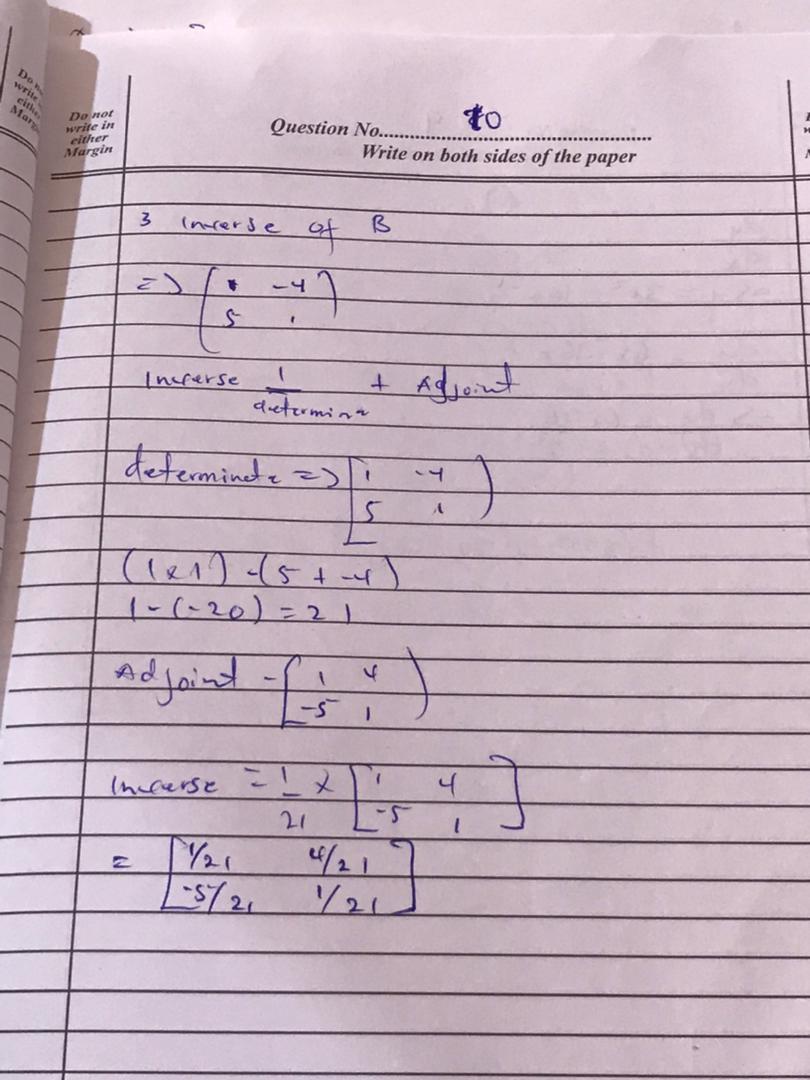 Do not
write in
either
Margin
Question No. 10
Write on both sides of the paper
3 Inverse of B
=> ( 1 -4
5 1 )
Inverse 1/determinx + Adjoint
determinate => [ 1 -4
5 1 )
(1x1) -(5 + -4)
1-(-20) = 21
Adjoint - [ 1 4
-5 1 )
Inverse = 1/21 x [ 1 4
-5 1 ]
= [ 1/21 4/21
-5/21 1/21 ]